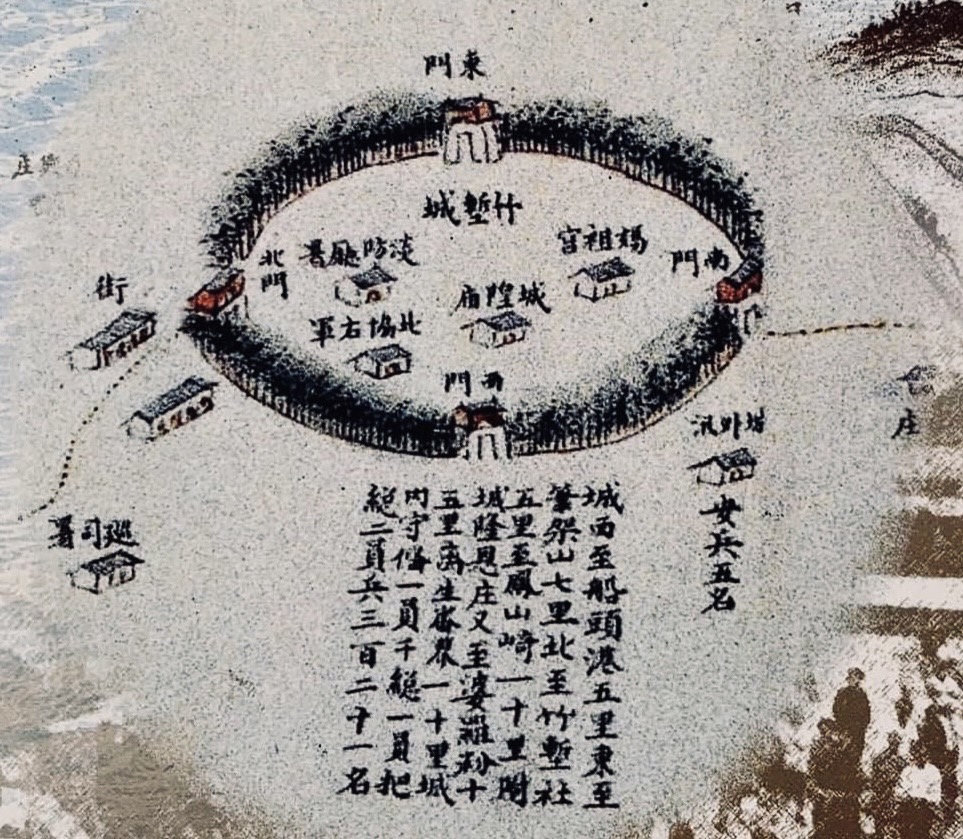 東門
竹塹城
媽祖宮
南門
淡防廳署
北門
城隍庙
北協右軍
西門
街
外汛
安兵五名
巡司署
庄
庄
城西至船頭港五里東至
筆架山七里北至竹塹社
五里至鳳山崎一十里附
城隆恩庄又至婆羅粉十
五里离生番界一十里城
内守俻一員千縂一員把
縂二員兵三百二十一名